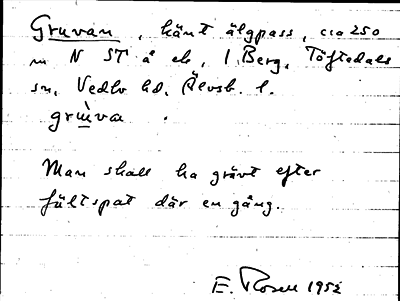 Gruvan, känt älgpass, cia 250
m N ST å eb, 1 Berg, Töftedals
sn, Vedbo hd. Älvsb. l.
grùva.
Man skall ha grävt efter
fältspat där en gång.
E. Rosen 1952